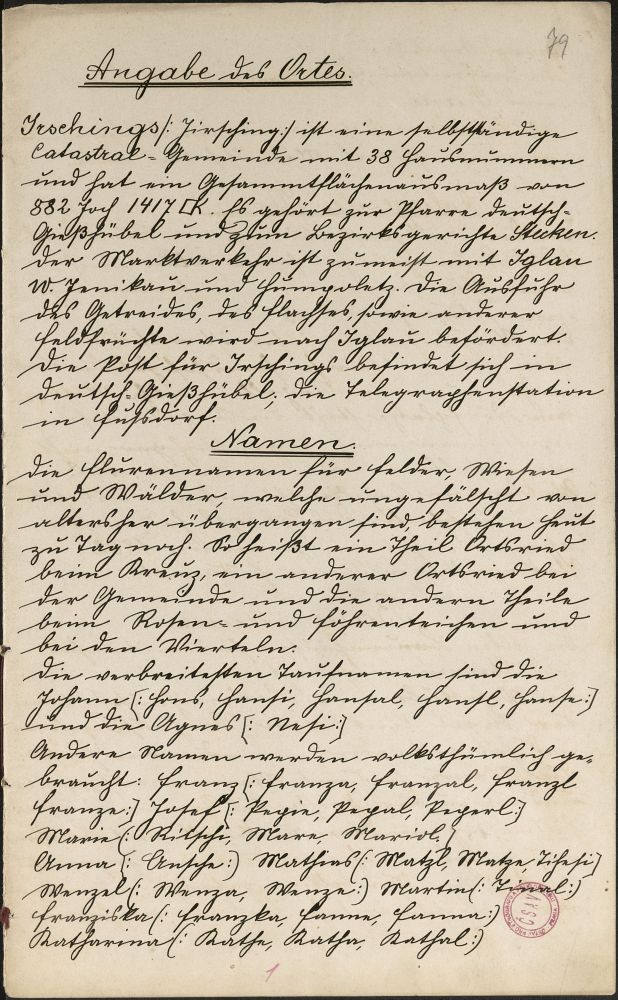 79
Angabe des Ortes.
Irschings /: Jirsching :/ ist eine selbstständige
Catastral-Gemeinde mit 38 Hausnummern
und hat ein Gesammtflächenausmaß von
882 Joch 1417 □K. Es gehört zur Pfarre Deutsch-
Gießhübel und zum Bezirksgerichte Stecken.
Der Marktverkehr ist zumeist mit Iglau
W. Jenikau und Humpoletz. Die Ausfuhr
des Getreides, des Flachses, sowie anderer
Feldfrüchte wird nach Iglau befördert.
Die Post für Irschings befindet sich in
Deutsch-Gießhübel, die Telegraphenstation
in Fußdorf.
Namen.
Die Flurennamen für Felder, Wiesen
und Wälder, welche ungefälscht von
altersher übergangen sind, bestehen heut
zu Tag noch. So heißt ein Theil Ortsried
beim Kreuz, ein anderer Ortsried bei
der Gemeinde und die andern Theile
beim Rosen- und Föhrenteichen und
bei den Vierteln.
Die verbreitesten Taufnamen sind die
Johann [: Hons, Hansi, Hansal, Hansl, Hanse :]
und die Agnes [: Nesi :]
Andere Namen werden volksthümlich ge-
braucht: Franz [: Franza, Franzal, Franzl
Franze :] Josef [: Pepie, Pepal, Peperl :]
Marie (: Mare, Mariol.)
Anna (: Ansche :) Mathias (: Matzl, Matze
Wenzel (: Wenza, Wenze :) Martin (:
Franziska (: Franzka, Fanne, Fanna :)
Katharina (: Kathe, Katha, Kathal :)
ČSAV
1